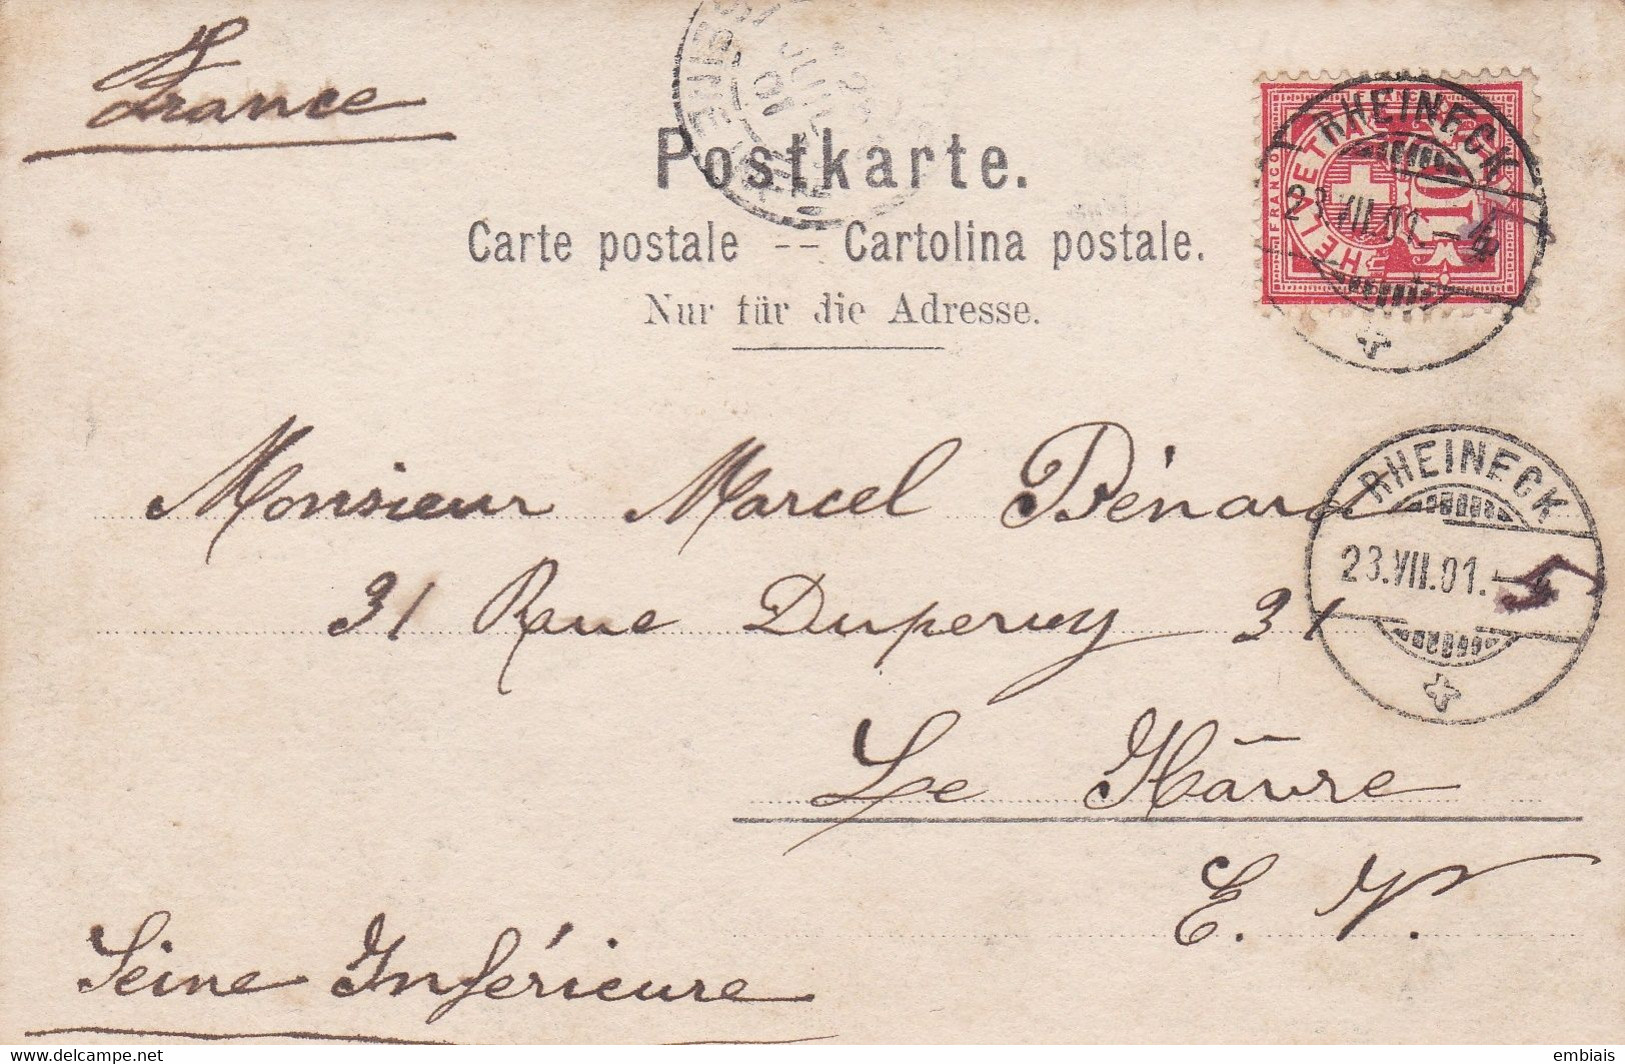 France
Postkarte.
Carte postale -- Cartolina postale.
Nur für die Adresse.
FRANCO
HELVETIA
10
RHEINECK
23.VII.01.–4
JUIL
01
SEINE
RHEINECK
23.VII.01.–
Monsieur Marcel Bénard
31 Rue Duperrey 31
Le Hâvre
E. V.
Seine Inférieure
Delcampe.net
embiais